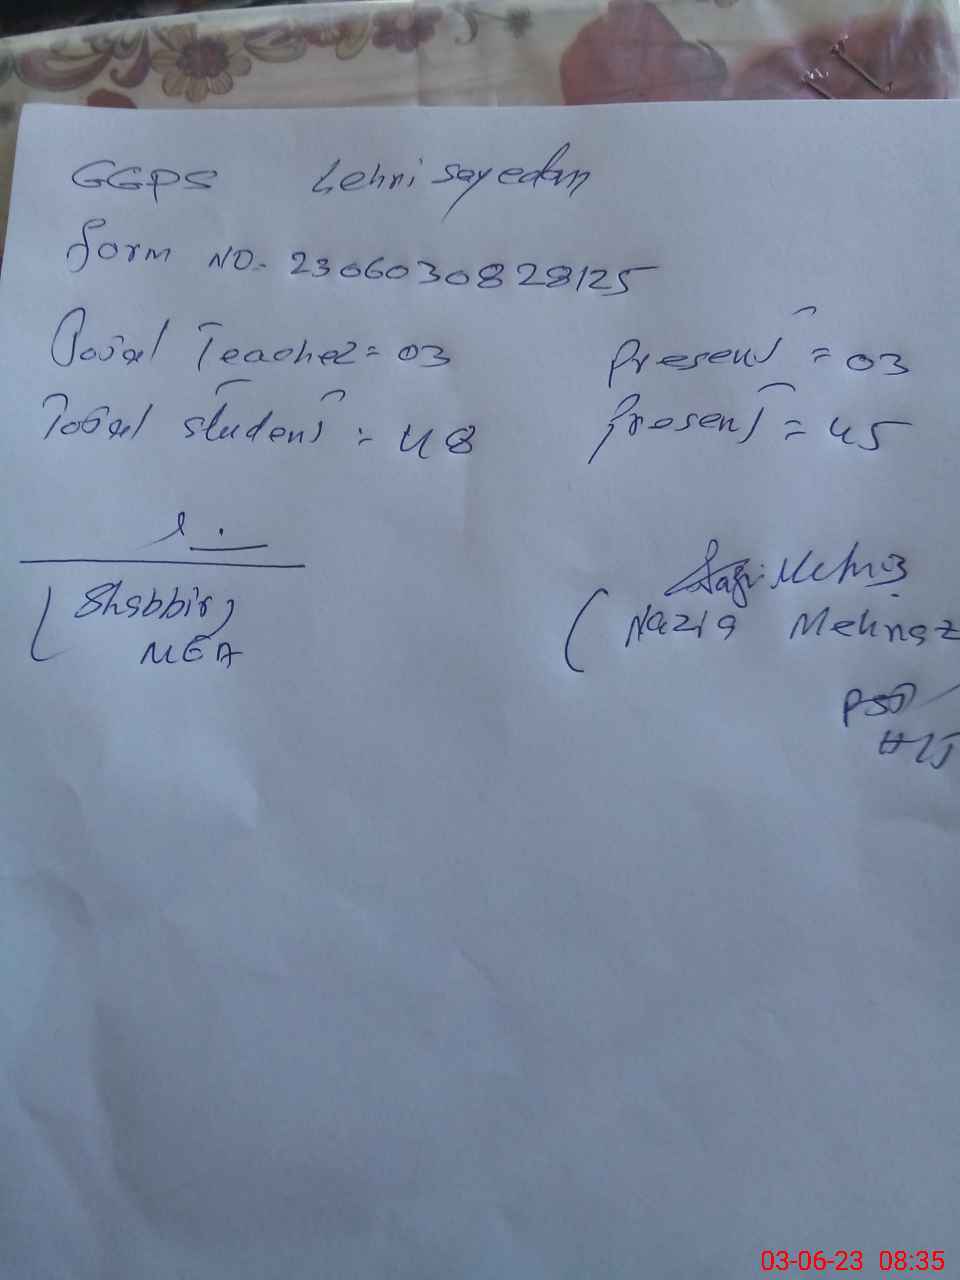 GGPS Lehri Sayedan
Form NO. 2306030828125
Total Teacher = 03 Present = 03
Total student = 48 Present = 45
(Shabbir)
MEA
(Nazia Mehnaz
PST
03-06-23 08:35